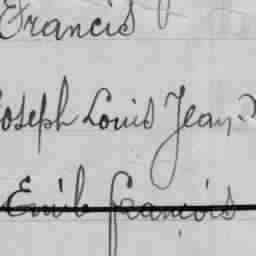 Francis
Joseph Louis Jean
Emile François